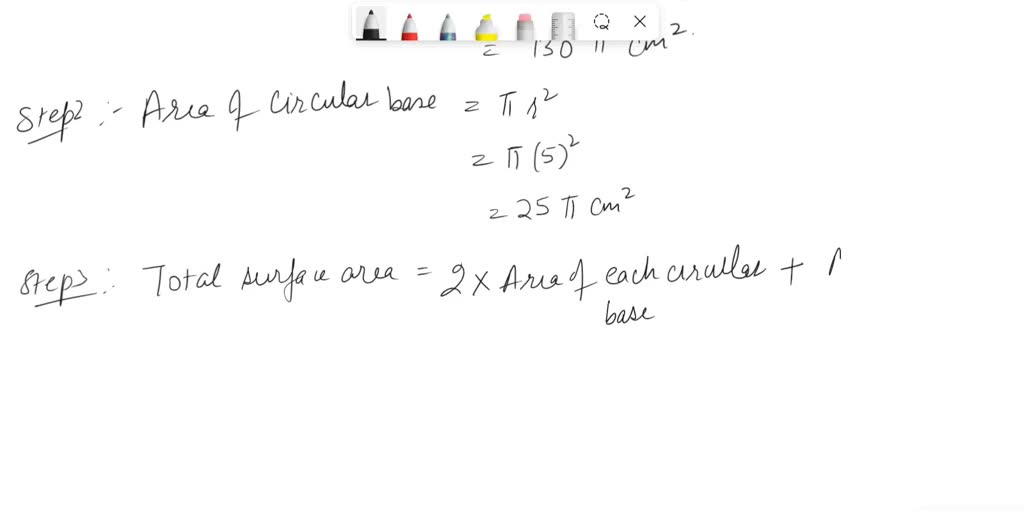 = 130 π cm².
Step2 :- Area of circular base = π r²
= π (5)²
= 25 π cm²
Step3 :- Total surface area = 2 x Area of each circular +
base